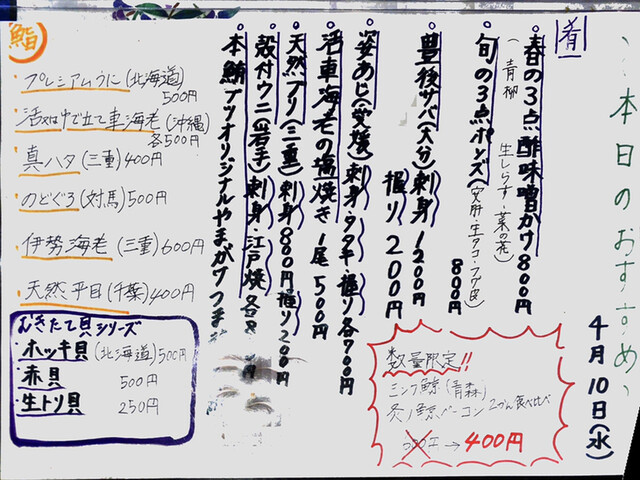 本日のおすすめ
4月10日(水)
肴
・春の3点酢味噌かけ 800円
(青柳 生しらす・菜の花)
・旬の3点ポンズ(安肝・生タコ・フグ皮)
800円
・豊後サバ(大分)刺身 1200円
握り 200円
・姿あじ(愛媛)刺身・タタキ・握り 各700円
・活車海老の塩焼き 1尾 500円
・天然ブリ(三重)刺身 800円 握り 200円
・殻付ウニ(岩手)刺身・江戸焼 各
・本鮪ブツオリジナルやまがけつま
鮨
・プレミアムうに(北海道)
500円
・活又はゆで立て車海老(沖縄)
各500円
・真ハタ(三重)400円
・のどぐろ(対馬)500円
・伊勢海老(三重)600円
・天然平目(千葉)400円
むきたて貝シリーズ
・ホッキ貝(北海道)500円
・赤貝 500円
・生トリ貝 250円
数量限定!!
ミンク鯨(青森)
炙り鯨ベーコン 2カン食べ比べ
500円→400円